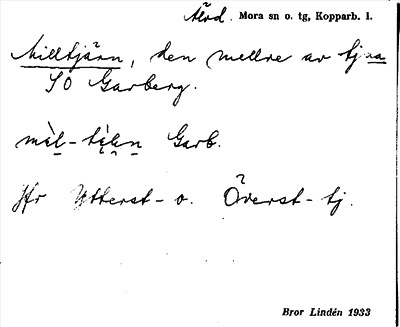 Mora sn o. tg, Kopparb. l.
Milltjärn, den mellre av tj:na
SO Garberg.
mèl-tjèn Garb.
Jfr Ytterst- o. Överst- tj.
Bror Lindén 1933